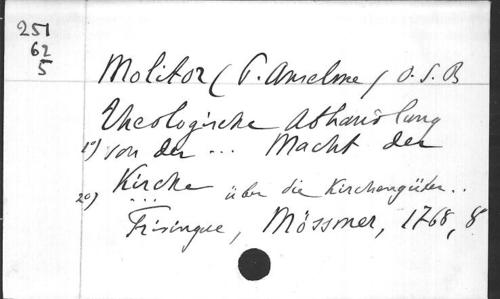 251
62
5
Molitor (P. Anselme) O.S.B
Theologische Abhandlung
1°) von der ... Macht der
Kirche
2°) ... über die Kirchengüter..
Frisingue, Mössmer, 1768, 8°